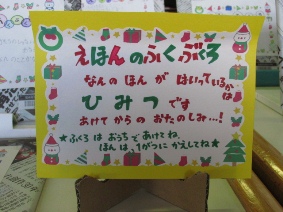 えほんのふくぶくろ
なんの ほん が はいっているかは
ひみつ です
あけて からの おたのしみ…!
★ふくろ は おうち で あけて ね。
ほん は、1がつに かえしてね★